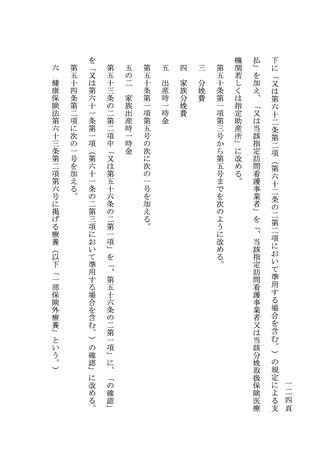 一二四頁
下に「又は第六十一条第二項（第六十二条の二第二項において準用する場合を含む。）の規定による支
払」を加え、「又は当該指定訪問看護事業者」を「、当該指定訪問看護事業者又は当該分娩取扱保険医療
機関若しくは指定助産所」に改める。
第五十条第一項第三号から第五号までを次のように改める。
三　分娩費
四　家族分娩費
五　出産時一時金
第五十条第一項第五号の次に次の一号を加える。
五の二　家族出産時一時金
第五十三条の二第二項中「又は第五十六条の二第一項」を「、第五十六条の二第一項」に、「の確認」
を「又は第六十一条第一項（第六十一条の二第三項において準用する場合を含む。）の確認」に改める。
第五十四条第二項に次の一号を加える。
六　健康保険法第六十三条第二項第六号に掲げる療養（以下「一部保険外療養」という。）